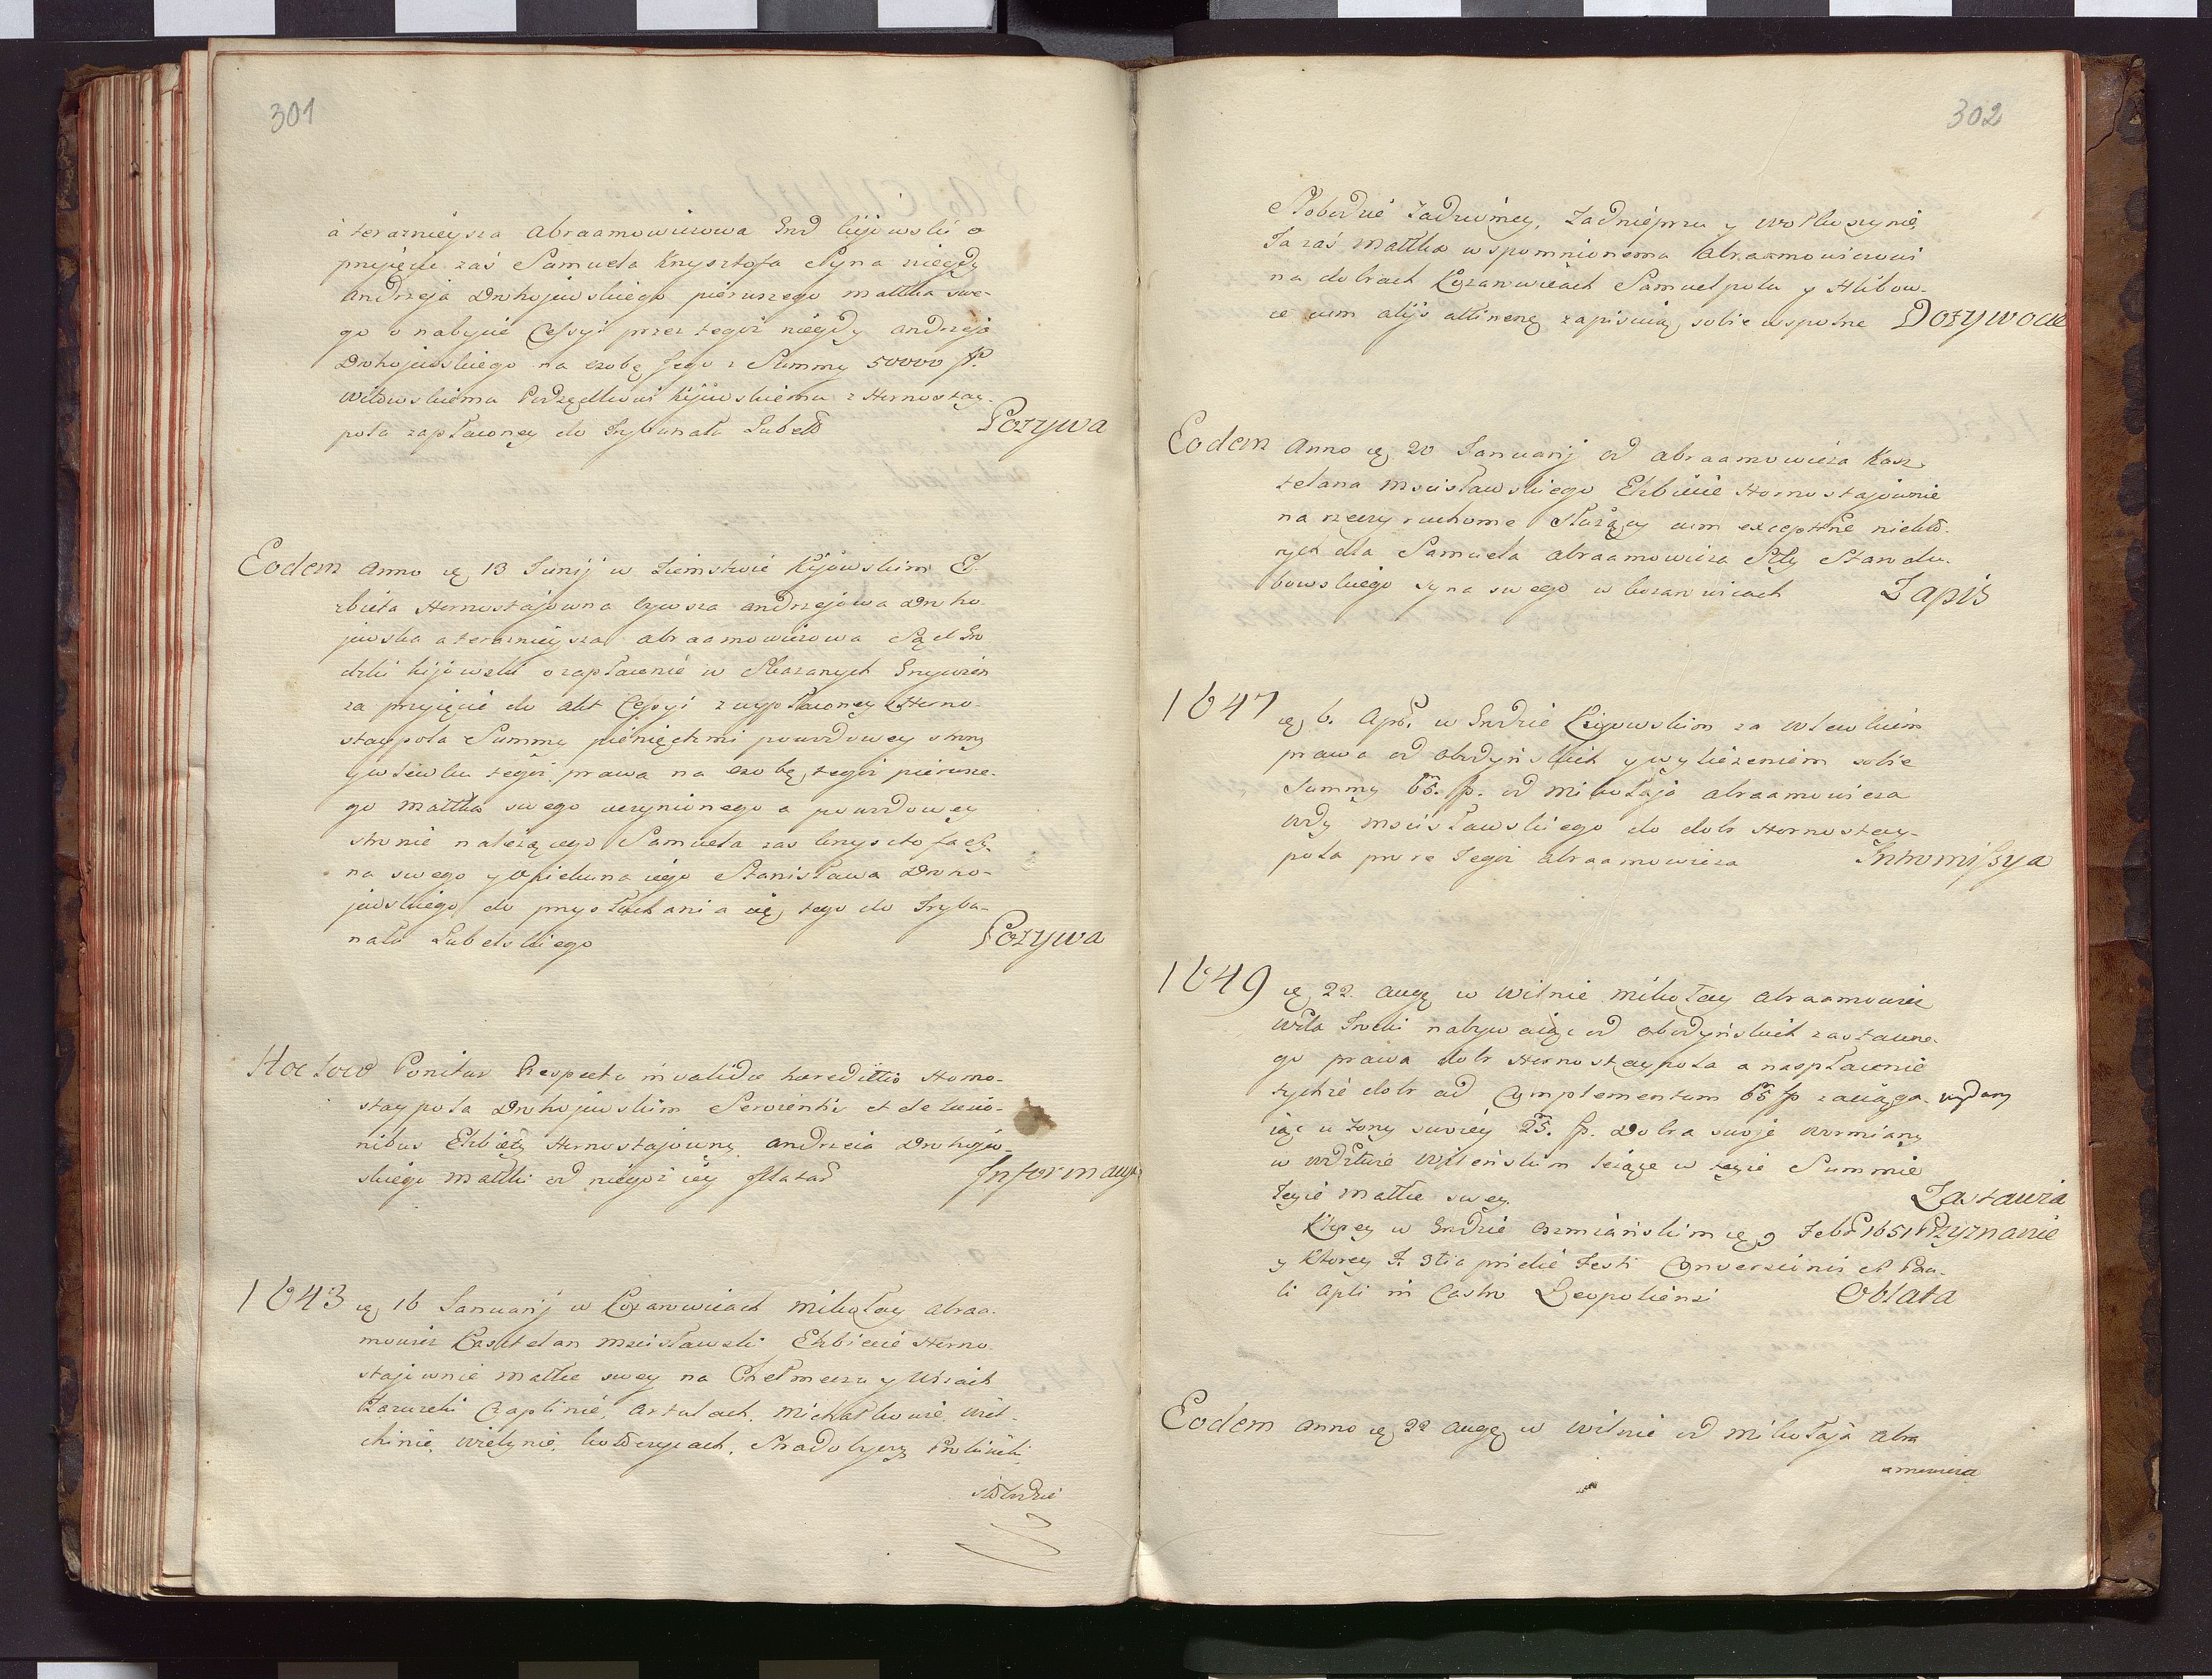 301
a terazniejsza Abraamowiczowa Grd kijowski o
przyięcie zaś Samuela Krysztofa Syna niegdy
Andrzeja Drohojewskiego pierwszego małżka swe-
go o nabycie Cessyi przez tegoż niegdy Andrzeja
Drohojewskiego na osobę Jego z Summy 50000 fp.
Witowskiemu Podsędkowi Kijowskiemu z Hornostay-
pola zapłaconey do Trybunału Lubel Pozywa
Eodem Anno ię 13 Junij w Ziemstwie Kijowskim El-
zbieta Hornostajowna bywsza Andrzejowa Droho-
jewska a teraznieysza Abraamowiczowa Sąd Gro
dzki kijowski o zapłacenie w Skazanych Grzywien
za przyięcie do Akt Cessyi z wypłaconey z Horno-
staypola Summy pieniędzmi powodowey strony
y wlewku tegoż prawa na osobę tegoż pierwsze-
go małżka swego uczynionego a powodowey
stronie należącego Samuela zas Krysztofa Sy-
na swego y Opiekuna iego Stanisława Droho-
jewskiego do przysłuchania się tego do Trybu-
nału Lubelskiego Pozywa
Hoc loco Ponitur Respectu invalidae haereditis Horno-
staypola Drohojewskim Servientis et de lesio-
nibus Elzbiety Hornostajowny Andrzeia Drohojew-
skiego małżki od niegoż iey illatas Informacya
1643 ię 16 Januarij w Rożanowicach Mikołay Abraa-
mowicz Kasztelan Mscisławski Elzbiecie Horno-
stajownie małżce swey na Chełmeczu y Uszach
Zazureki Czaplinie, Artulach, Michałkowie, Wiel-
chinie, Wielynie, kołczycach, Stradolycz Prolińcki
słobodzie
302
Słobodzie Zadrwiney, Zadnieprzu y Wolkoszynie,
Ta zaś małżka wspomnionemu Abraamowiczowi
na dobrach Rożanowicach Samuelpolu y Hlibow-
ce cum aliis attinenę zapisuią sobie wspolne Dożywocie
Eodem Anno ię 20 Januarij od Abraamowicza Kasz-
telana Mscisławskiego Elzbiecie Hornostajownie
na rzeczy ruchome służący cum exceptne niektó-
rych dla Samuela Abraamowicza Stty Starodu-
bowskiego syna swego w Rożanowicach Zapis
1647 ię 6. Apr. w Grodzie Kijowskim za wlewkiem
prawa od Obodyńskich y wyliczeniem sobie
Summy 65. fp. od Mikołaja Abraamowicza
Wdy Mscisławskiego do dobr Hornostay-
pola pro re Tegoż Abraamowicza Intromissya
1649 ię 22. Augę w Wilnie Mikołay Abraamowicz
Wda Trocki nabywaiąc od Obodyńskich zastawne-
go prawa dobr Hornostaypola a na spłacenie
tychże dobr ad Complementum 65 fp zaciąga-
wydany
iąc u Żony swoiey 25. fp. Dobra swoje Wormiany
w Wdztwie Wileńskim leżące w teyże Summie
Teyże małżce swey. Zastawia
Ktorey w Grodzie Oszmiańskim ię 9 Febr 1651 Przyznanie
y Ktorey F. 3tia pridie Festi Conversionis St Pau-
li Apli in Castro Leopoliensi Oblata
Eodem Anno ię 22 Augę w Wilnie od Mikołaja Abra
amowicza